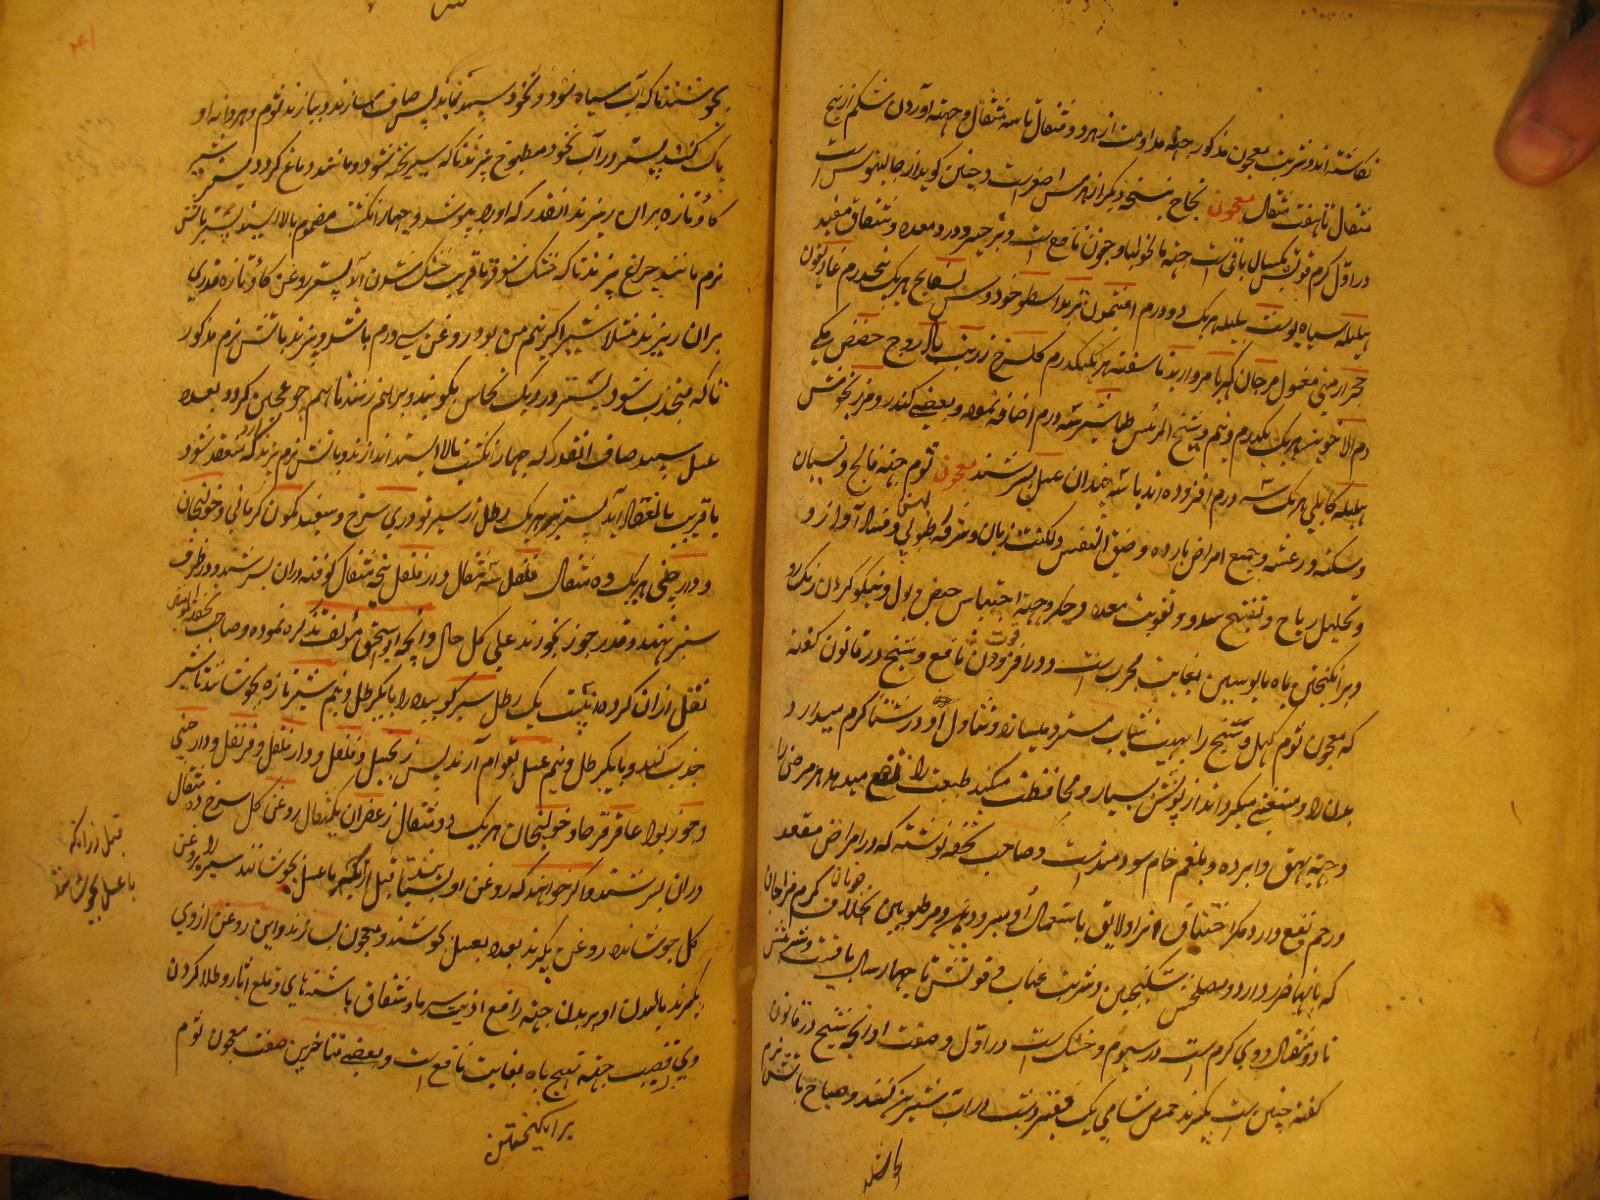 نکاشته‌اند و شربت معجون مذکور جهة مداومت از هر دو مثقال تا سه مثقال و جهة آوردن شکم از پنج
مثقال تا هفت مثقال معجون نجاح بنسخه دیگر از هرمس اصغر است و چنین کوید از جالینوس است
در اول کرم قوتش یکسال باقی است جهة مالیخولیا و جنون نافع است و تب و درد معده و شقاق مفید
هلیله سیاه پوست بلیله هر یک ده درم افتیمون تربد اسطوخودوس بسفایج هر یک پنجدرم غاریقون
حجر ارمنی مغسول مرجان کهربا مروارید ناسفته هر یک یکدرم کلسرخ زرنب حضض مکی
دم الاخوین هر یک یکدرم و نیم و شیخ الرئیس طباشیر سه درم اضافه نموده و بعضی کندر و مرزنجوش
هلیله کابلی هر یک سه درم افزوده‌اند با سه چندان عسل بسرشند معجون ثوم جهة فالج و نسیان
و سکته و رعشه و جمیع امراض بارده و ضیق النفس و لکنت زبان و سرفه کهن رطوبی و فساد آواز و
و تحلیل ریاح و تفتیح سدد و تقویت معده و جکر و جهة احتباس حیض و بول و نیکو کردن رنک رو
و برانکیختن باه مایوسین بغایت مجرب است و در افزودن قوت نافع و شیخ در قانون کفته
که معجون ثوم کهل و شیخ را بهیئت شباب مسترد میسازد و تناول او در شتا کرم میدارد
بدن را و مستغنی میکرداند از پوشش بسیار و محافظت میکند طبیعت را نفع میدهد هر مرض را
و جهة بهق و ابرده و بلغم خام سودمند است و صاحب تحفه نوشته که در امراض مقعد
و رحم نفع دارد مکر اختناق و نزاد لایق باستعمال او مبرودین و مرطوبین بخلاف جوانان کرم مزاجان
که بآنها ضرر دارد و مصلحش سکنجبین و شربت عناب و قوتش تا چهار سال باقیست و شربتش
تا دو مثقال و وی کرم است در سیوم و خشک است در اول و صفت او آنچه شیخ در قانون
کفته چنین است بگیرند حمص شامی یک قفیز و شب در آب شیرین کنند و صباح بآتش نرم
بجوشند
بجوشند تا که آب سیاه شود و نخود سپید نماید پس صاف سازند و بیارند ثوم و هر دانه او
پاک کنند پستر در آب نخود مطبوخ پزند تا که سیر پخته شود و مانند دماغ کردد پستر شیر
کاو تازه بران ریزند انقدر که او را بپوشد و چهار انکشت مضموم بالا ایستد پستر بآتش
نرم مانند چراغ پزند تا که خشک شود یا قریب خشک شدن آید پستر روغن کاو تازه قدری
بران ریزند مثلا شیر اکر نیم من بود روغن سی درم باشد و پزند بآتش نرم مذکور
تا که منجذب شود پستر در دیک نحاس بکوبند و برهم زنند تا بهم چو عجین کردد بعده
عسل سپید صاف انقدر که چهار انکشت بالا ایستد اندازند و بآتش نرم پزند که منعقد شود
یا قریب بانعقاد آید پستر هر یک رطل از سیر تودری سرخ و سفید کمون کرمانی و خولنجان
و دارچینی هر یک ده مثقال فلفل سه مثقال و دارفلفل پنج مثقال کوفته دران بسرشند و در ظرف
سبز نهند و قدر جوز بخورند علی کل حال و آنچه ابو اسحق مؤلف تذکره نموده و صاحب تحفه
نقل ازان کرده اینست یک رطل سیر کوبیده را با یکرطل و نیم شیر تازه بجوشانند تا شیر
جذب کند و با یکرطل و نیم عسل بقوام آرند پس زنجبیل و فلفل و دارفلفل و قرنفل و دارچینی
و جوزبوا عاقرقرحا و خولنجان هر یک دو مثقال زعفران یکمثقال روغن کل سرخ ده مثقال
دران بسرشند و اکر خواهند که روغن او بستانند قبل از آنکه با عسل بجوشانند سیر را بروغن
کل جوشانده روغن بگیرند بعده بعسل کوشند و معجون سازند و این روغن از وی
بکیرند مالیدن او بر بدن جهة رافع اذیت سرما و شقاق پاشنه‌های و قلع آثار و طلا کردن
وی قضیب جهة تهیج باه بغایت نافع است و بعضی متأخرین صفت معجون ثوم
برانکیختن
قبل از آنکه
با عسل بجوشانند